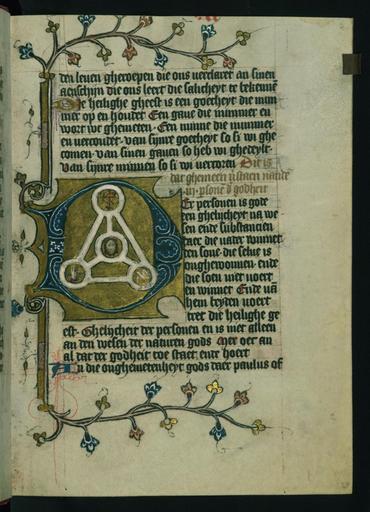 den leuen gheroepen die ons verclaret an sinen
aenschijn die ons leert die salicheyt te bekennē
Die heilighe gheest is een goetheyt die num
mer op en houdet Een gaue die nummer en
wort we ghemeten Een minne die nummer
en verroudet van sijnre goetheyt so si wi ghe
comen van sinen gauen so heb wi ghedeylt
van sijnre minnen so si wi vercoren Dit is
dat ghemeen
in godheit
er personen is gode
een ghelijcheyt na we
sen ende substancien
daer die vader winnet
den sone die selue is
onghewonnen ende
die soen niet noert
en winnet Ende vā
hem beyden voert
tret die heilighe ge
est Ghelijcheit der personen en is niet alleen
an den wesen der naturen gods Mer oec an
al dat der godheit toe staet ende hoert
An die onghemeenheyt gods daer paulus of